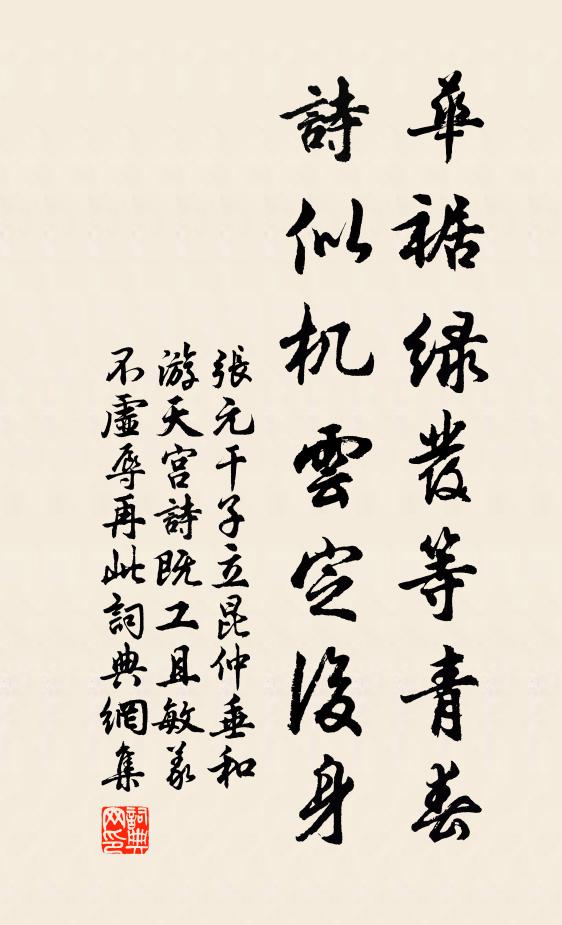 華裾緑髮等青春
詩似机雲定後身
張元干子立昆仲垂和
游天宫詩既工且敏義
不虛辱再此詞典網集
詞典
网印